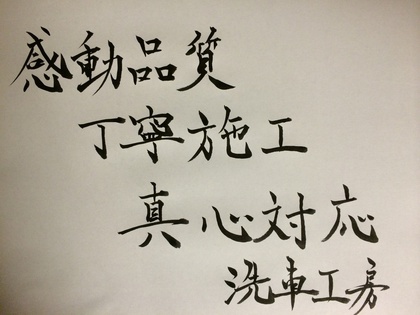 感動品質
丁寧施工
真心対応
洗車工房